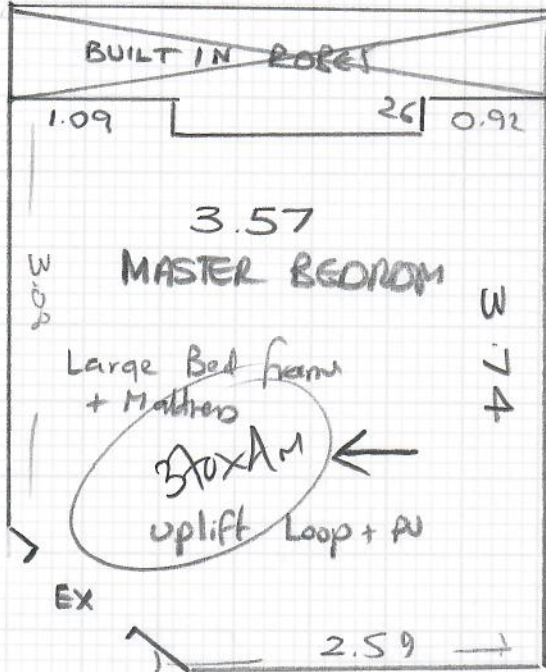 BUILT IN ROBES
1.09
26
0.92
3.57
MASTER BEDROOM
3.08
3.74
Large Bed frame
+ Mattress
uplift Loop + PU
EX
2.59